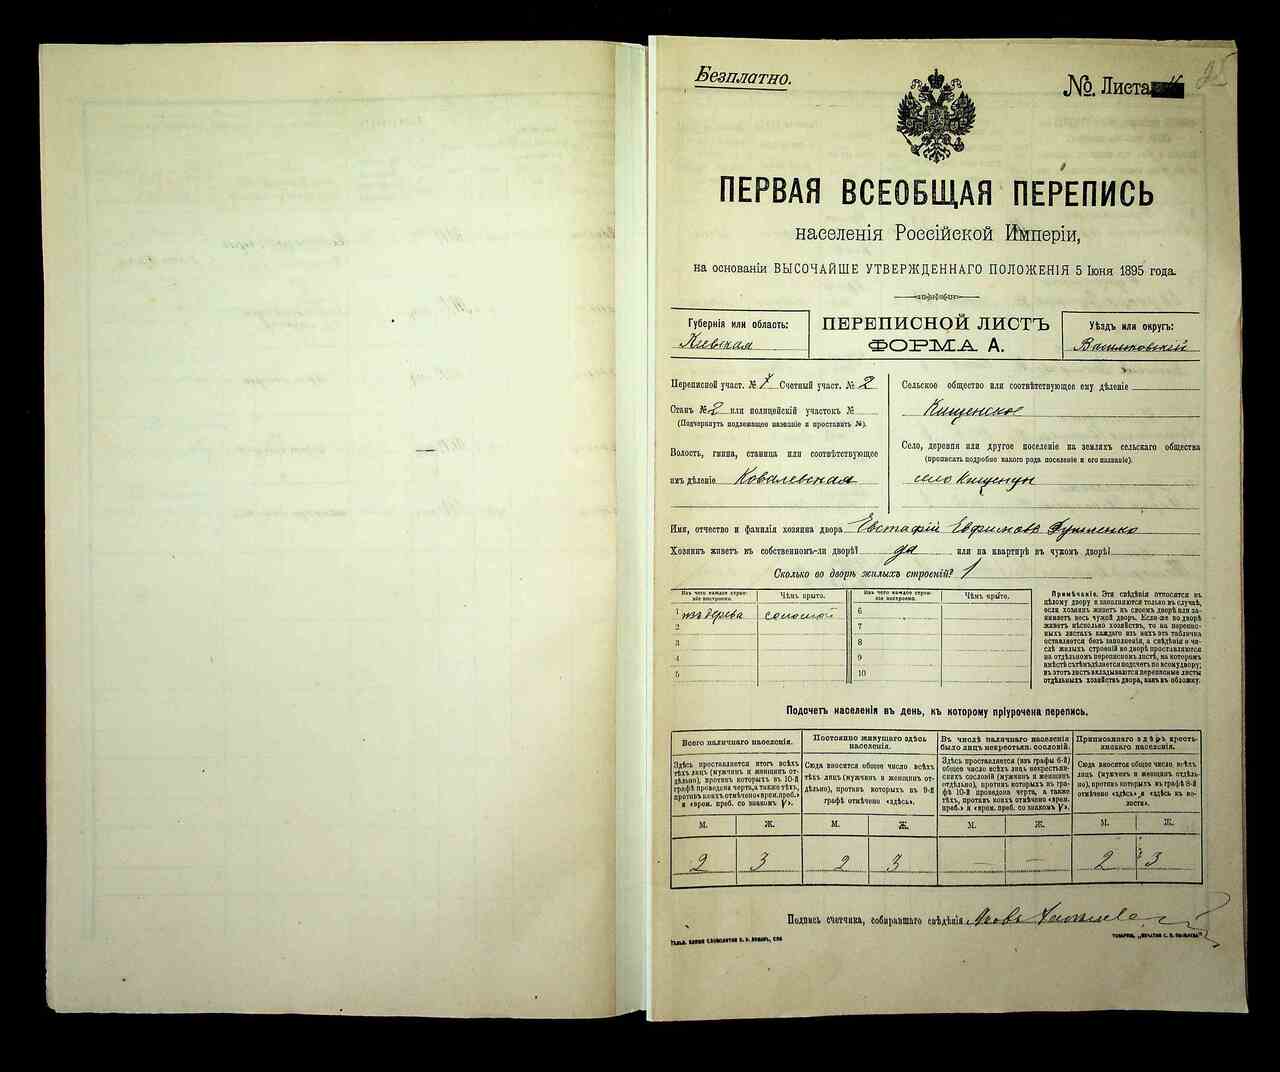 Безплатно.
№. Листа
25
ПЕРВАЯ ВСЕОБЩАЯ ПЕРЕПИСЬ
населенія Россійской Имперіи,
на основаніи ВЫСОЧАЙШЕ УТВЕРЖДЕННАГО ПОЛОЖЕНІЯ 5 Іюня 1895 года.
Губернія или область:
Кіевская
ПЕРЕПИСНОЙ ЛИСТЪ
ФОРМА А.
Уѣздъ или округъ:
Васильковскій
Переписной участ. № Счетный участ. № 2
Станъ № 2 или полицейскій участокъ №
(Подчеркнуть подлежащее названіе и проставить №).
Волость, гмина, станица или соотвѣтствующее
имъ дѣленіе Ковалевская
Сельское общество или соотвѣтствующее ему дѣленіе
Кищенское
Село, деревня или другое поселеніе на земляхъ сельскаго общества
(прописать подробно какого рода поселеніе и его названіе).
село Кищенцы
Имя, отчество и фамилія хозяина двора Евстафій Евфимовъ
Хозяинъ живетъ въ собственномъ-ли дворѣ? да или на квартирѣ въ чужомъ дворѣ?
Сколько во дворѣ жилыхъ строеній? 1
Изъ чего каждое строеніе построено. Чѣмъ крыто. Изъ чего каждое строеніе построено. Чѣмъ крыто.
1 изъ дерева соломой 6
2 7
3 8
4 9
5 10
Примѣчаніе. Эти свѣдѣнія относятся къ
цѣлому двору и заполняются только въ случаѣ,
если хозяинъ живетъ въ своемъ дворѣ или занимаетъ
весь чужой дворъ. Если же во дворѣ
живетъ нѣсколько хозяйствъ, то на переписныхъ
листахъ каждаго изъ нихъ эта табличка
оставляется безъ заполненія, а свѣдѣнія о числѣ
жилыхъ строеній во дворѣ проставляются
на отдѣльномъ переписномъ листѣ, на которомъ
вмѣстѣ съ тѣмъ дѣлается подсчетъ по всему двору;
въ этотъ листъ вкладываются переписные листы
отдѣльныхъ хозяйствъ двора, какъ въ обложку.
Подсчетъ населенія въ день, къ которому пріурочена перепись.
Всего наличнаго населенія.
Здѣсь проставляется итогъ всѣхъ
тѣхъ лицъ (мужчинъ и женщинъ отдѣльно),
противъ которыхъ въ 10-й
графѣ проведена черта, а также тѣхъ,
противъ коихъ отмѣчено «врем. преб.»
и «врем. преб. со знакомъ V».
Постоянно живущаго здѣсь
населенія.
Сюда вносится общее число всѣхъ
тѣхъ лицъ (мужчинъ и женщинъ отдѣльно),
противъ которыхъ въ 9-й
графѣ отмѣчено «здѣсь».
Въ числѣ наличнаго населенія
было лицъ некрестьян. сословій.
Здѣсь проставляется (изъ графы 6-й)
общее число всѣхъ лицъ некрестьянскихъ
сословій (мужчинъ и женщинъ
отдѣльно), противъ которыхъ въ графѣ
10-й проведена черта, а также
тѣхъ, противъ коихъ отмѣчено «врем.
преб.» и «врем. преб. со знакомъ V».
Приписаннаго здѣсь крестьянскаго
населенія.
Сюда вносится общее число всѣхъ
лицъ (мужчинъ и женщинъ отдѣльно),
противъ которыхъ въ графѣ 8-й
отмѣчено «здѣсь» и «здѣсь къ волости».
М. Ж. М. Ж. М. Ж. М. Ж.
2 3 2 3 — — 2 3
Подпись счетчика, собиравшаго свѣдѣнія Яковъ